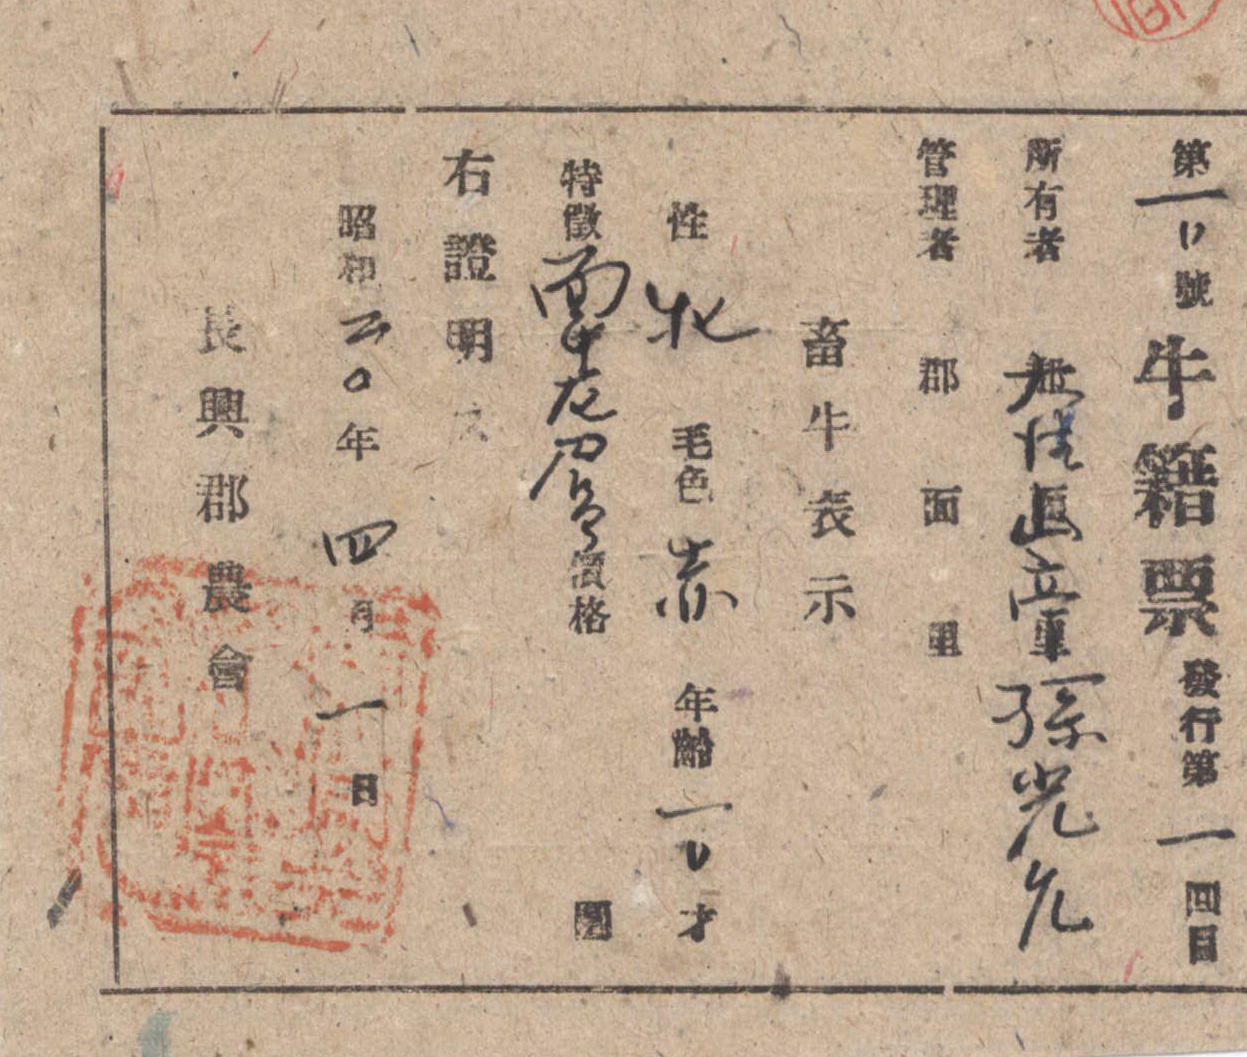 第一〇號 牛籍票 發行第一回目
所有者 大徳面 里 孫光允
管理者 郡 面 里
畜牛表示
性 牝 毛色 赤 年齡 一〇才
特徵 面 左 價格 圓
右證明ス
昭和二〇年四月一日
長興郡農會